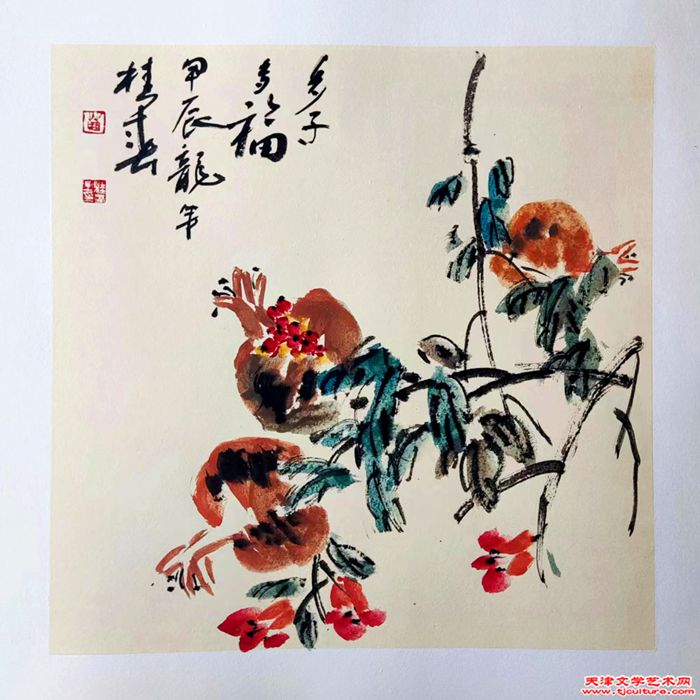 多子
多福
甲辰龍年
桂春
天津文学艺术网
www.tjculture.com